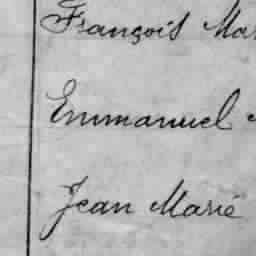 François Ma
Emmanuel
Jean Marie